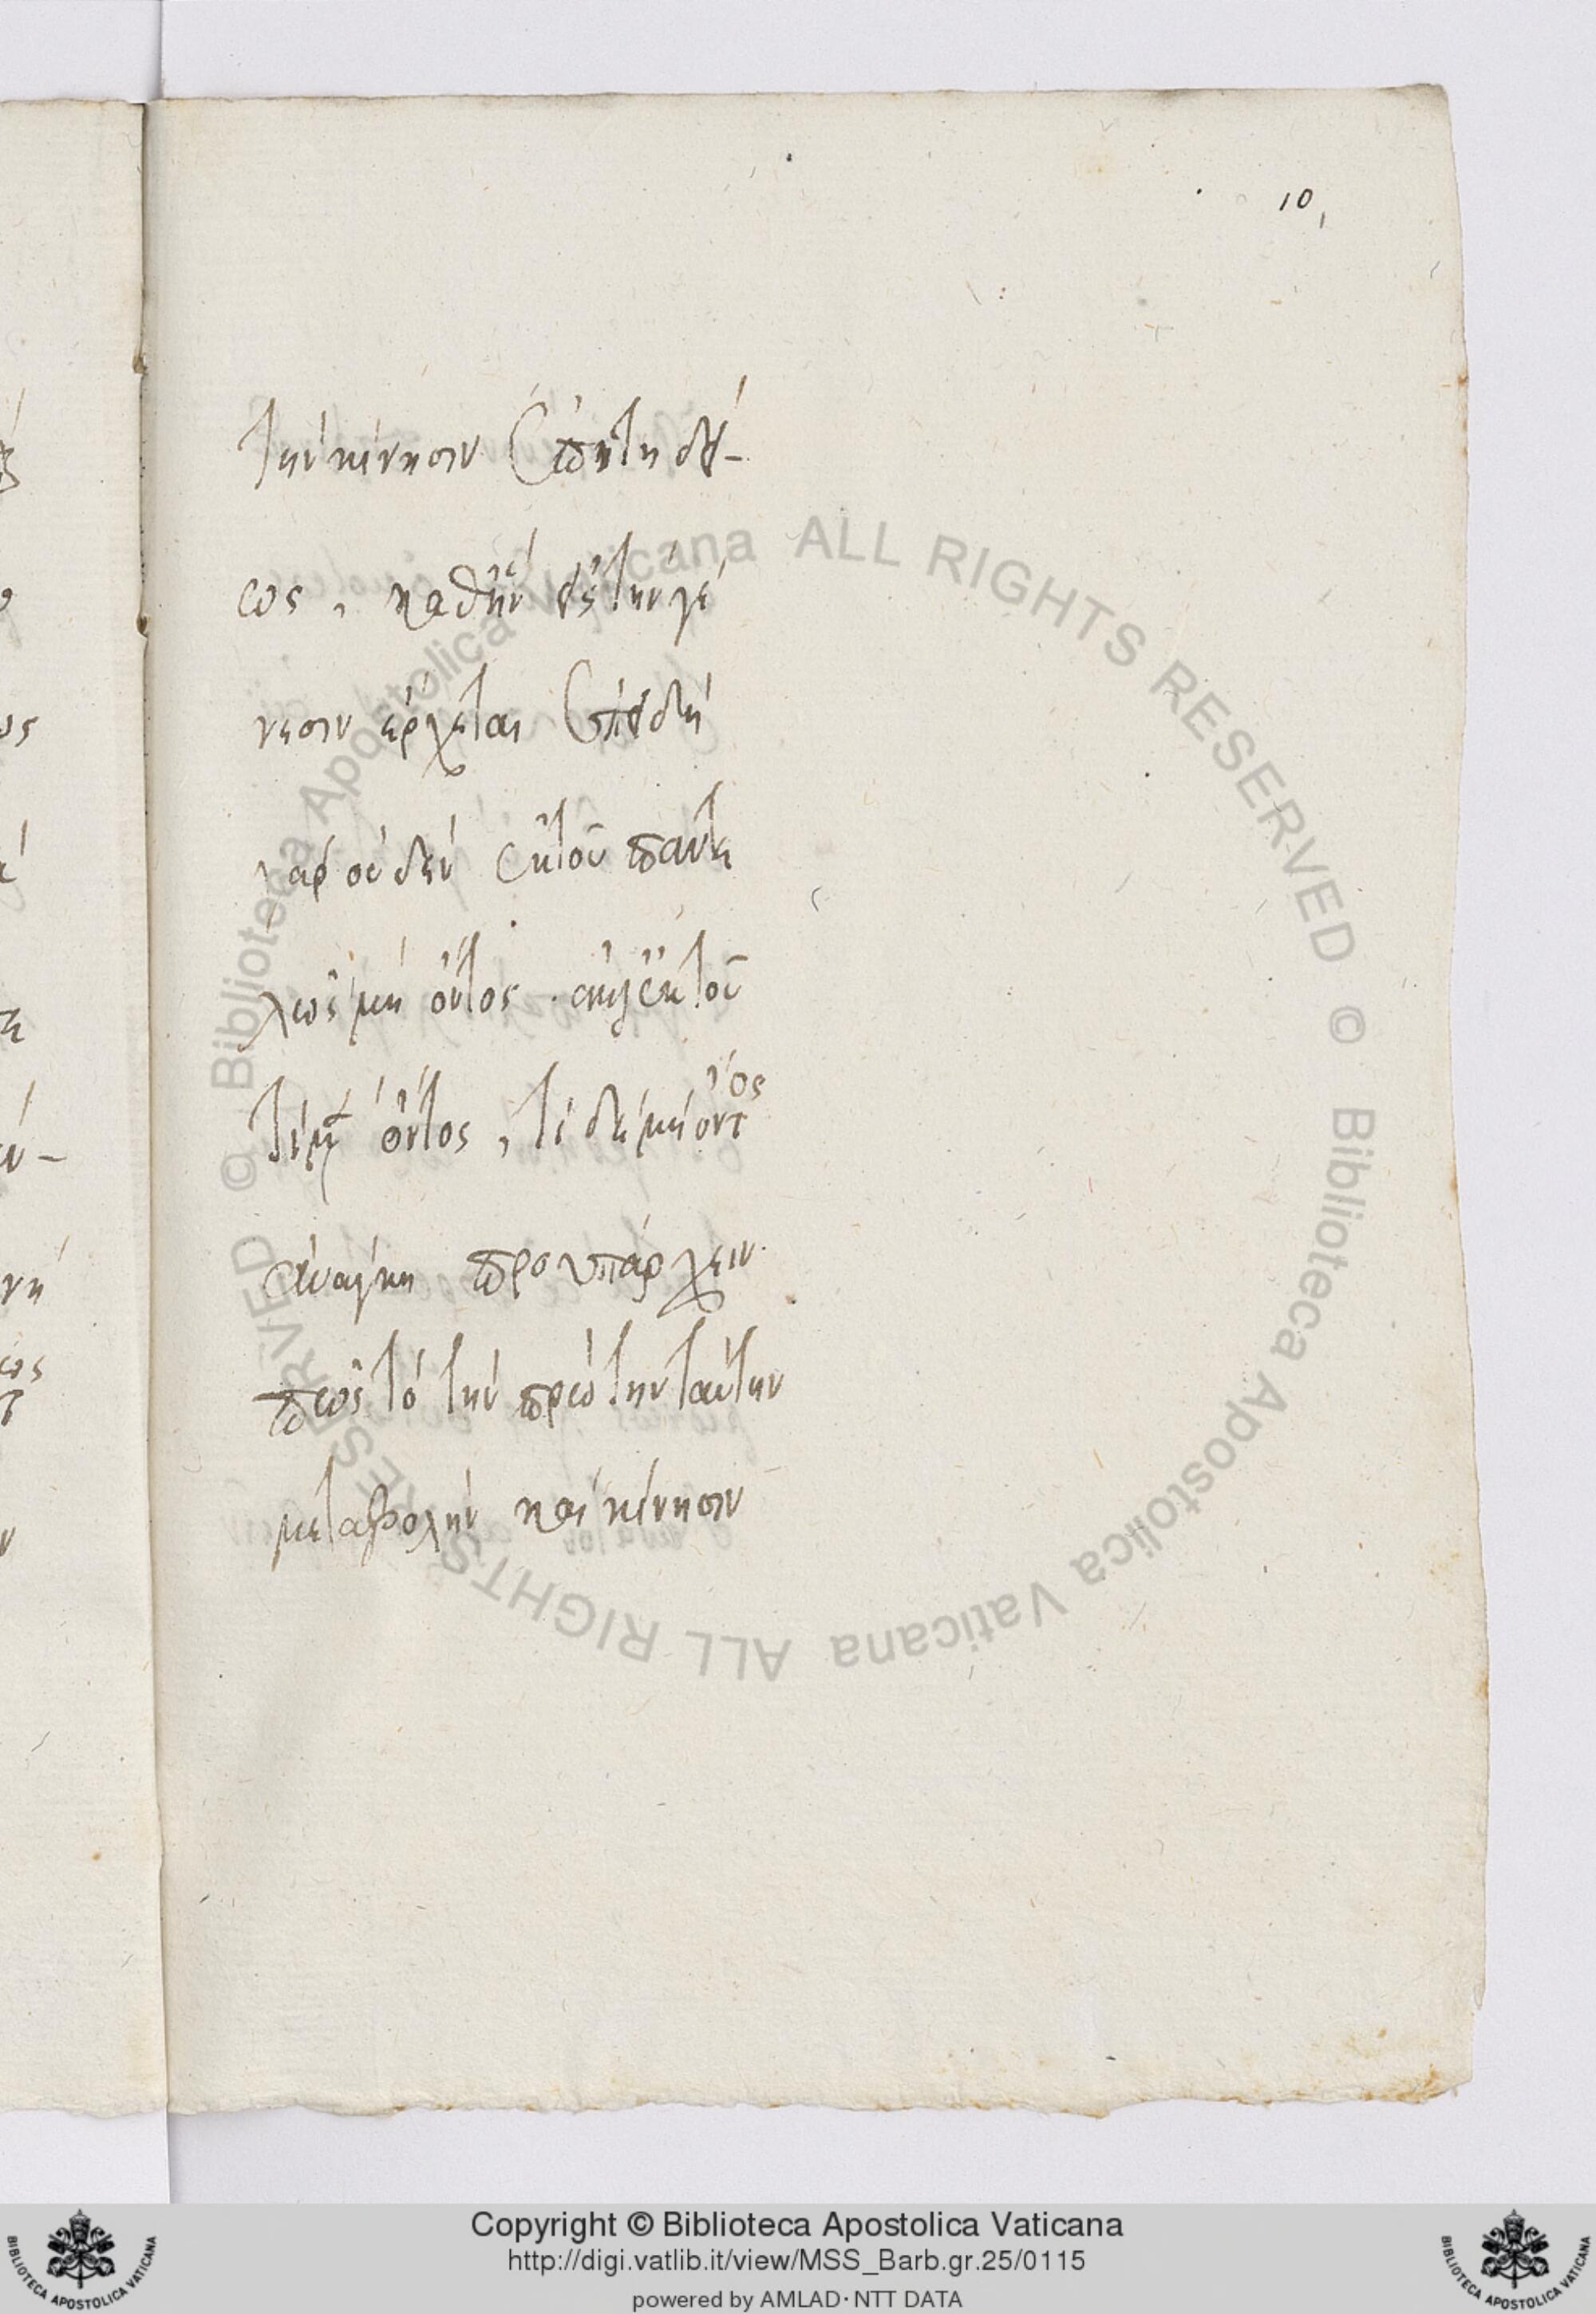 10,
τὴν κίνησιν ἐπιτηδεί-
ως, καθ' ἣν εἰς τὴν γέ
νεσιν ἔρχεται ἐπειδὴ
γὰρ οὐδὲν ἐκ τοῦ παντε
λῶς μὴ ὄντος. ἀλλ' ἐκ τοῦ
τὶ μὲν ὄντος, τὶ δὲ μὴ ὄντος
ἀνάγκη προυπάρχειν
πρὸς τὸ τὴν πρώτην ταύτην
μεταβολὴν καὶ κίνησιν
© Biblioteca Apostolica Vaticana ALL RIGHTS RESERVED © Biblioteca Apostolica Vaticana ALL RIGHTS RESERVED
Copyright © Biblioteca Apostolica Vaticana
http://digi.vatlib.it/view/MSS_Barb.gr.25/0115
powered by AMLAD·NTT DATA
BIBLIOTECA APOSTOLICA VATICANA
BIBLIOTECA APOSTOLICA VATICANA